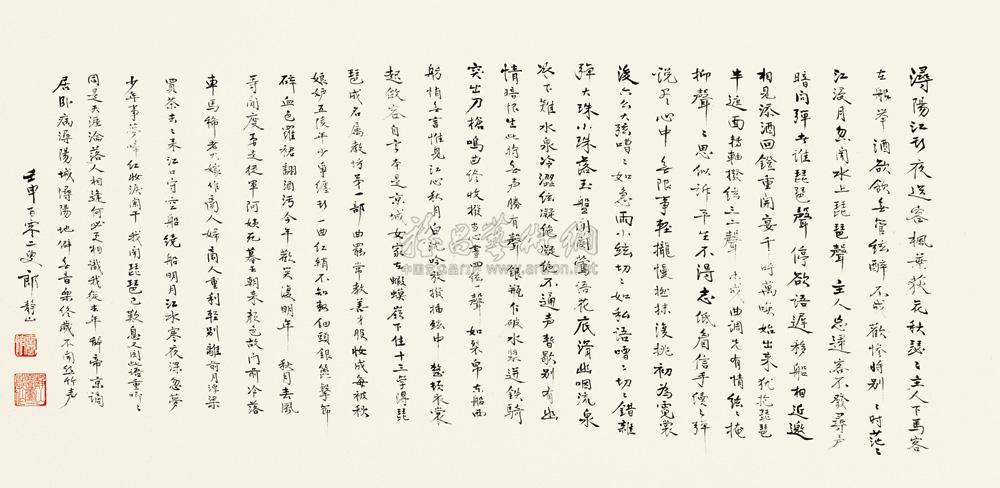 潯陽江頭夜送客楓葉荻花秋瑟〻主人下馬客
在船舉酒欲飲無管絃醉不成歡慘特別〻時茫〻
江浸月忽聞水上琵琶聲主人忘達客不發尋聲
暗問彈者誰琵琶聲停欲語遲移船相近邀
相見添酒回鐙重開宴千呼萬喚始出來猶抱琵琶
半遮面轉軸撥絃三二聲未成曲調先有情絃〻掩
抑聲〻思似訴平生不得志低眉信手續〻彈
說盡心中無限事輕攏慢撚抹復挑初為霓裳
後六么大絃嘈〻如急雨小絃切〻如私語嘈〻切〻錯雜
彈大珠小珠落玉盤間關鶯語花底滑幽咽流泉
冰下難水泉冷澀絃凝絕凝絕不通聲暫歇別有幽
情暗恨生此時無聲勝有聲銀瓶乍破水漿迸鐵騎
突出刀槍鳴曲終收撥當心畫四絃一聲如裂帛東船西
舫悄無言惟見江心秋月白沉吟放撥插絃中整頓衣裳
起斂容自言本是京城女家在蝦蟆嶺下住十三學得琵
琶成名屬教坊第一部曲罷常教善才服妝成每被秋
娘妒五陵年少爭纏頭一曲紅綃不知數鈿頭銀篦擊節
碎血色羅裙翻酒污今年歡笑復明年秋月春風
等閒度弟走從軍阿姨死暮去朝來顏色故門前冷落
車馬稀老大嫁作商人婦商人重利輕別離前月浮梁
買茶去〻來江口守空船繞船明月江水寒夜深忽夢
少年事夢啼紅妝淚闌干我聞琵琶已歎息又聞此語重唧〻
同是天涯淪落人相逢何必相識我從去年辭帝京謫
居臥病潯陽城潯陽地僻無音樂終歲不聞絲竹聲
壬申百二郎靜山